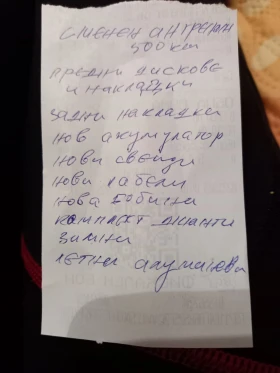 СМЕНЕН АНТРЕФИЛ
500 km
ПРЕДНИ ДИСКОВЕ
И НАКЛАДКИ
ЗАДНИ НАКЛАДКИ
НОВ АКУМУЛАТОР
НОВИ СВЕЩИ
НОВИ КАБЕЛИ
НОВА БОБИНА
КОМПЛЕКТ ДЖАНТИ
ЗИМНИ
ЛЕТНИ